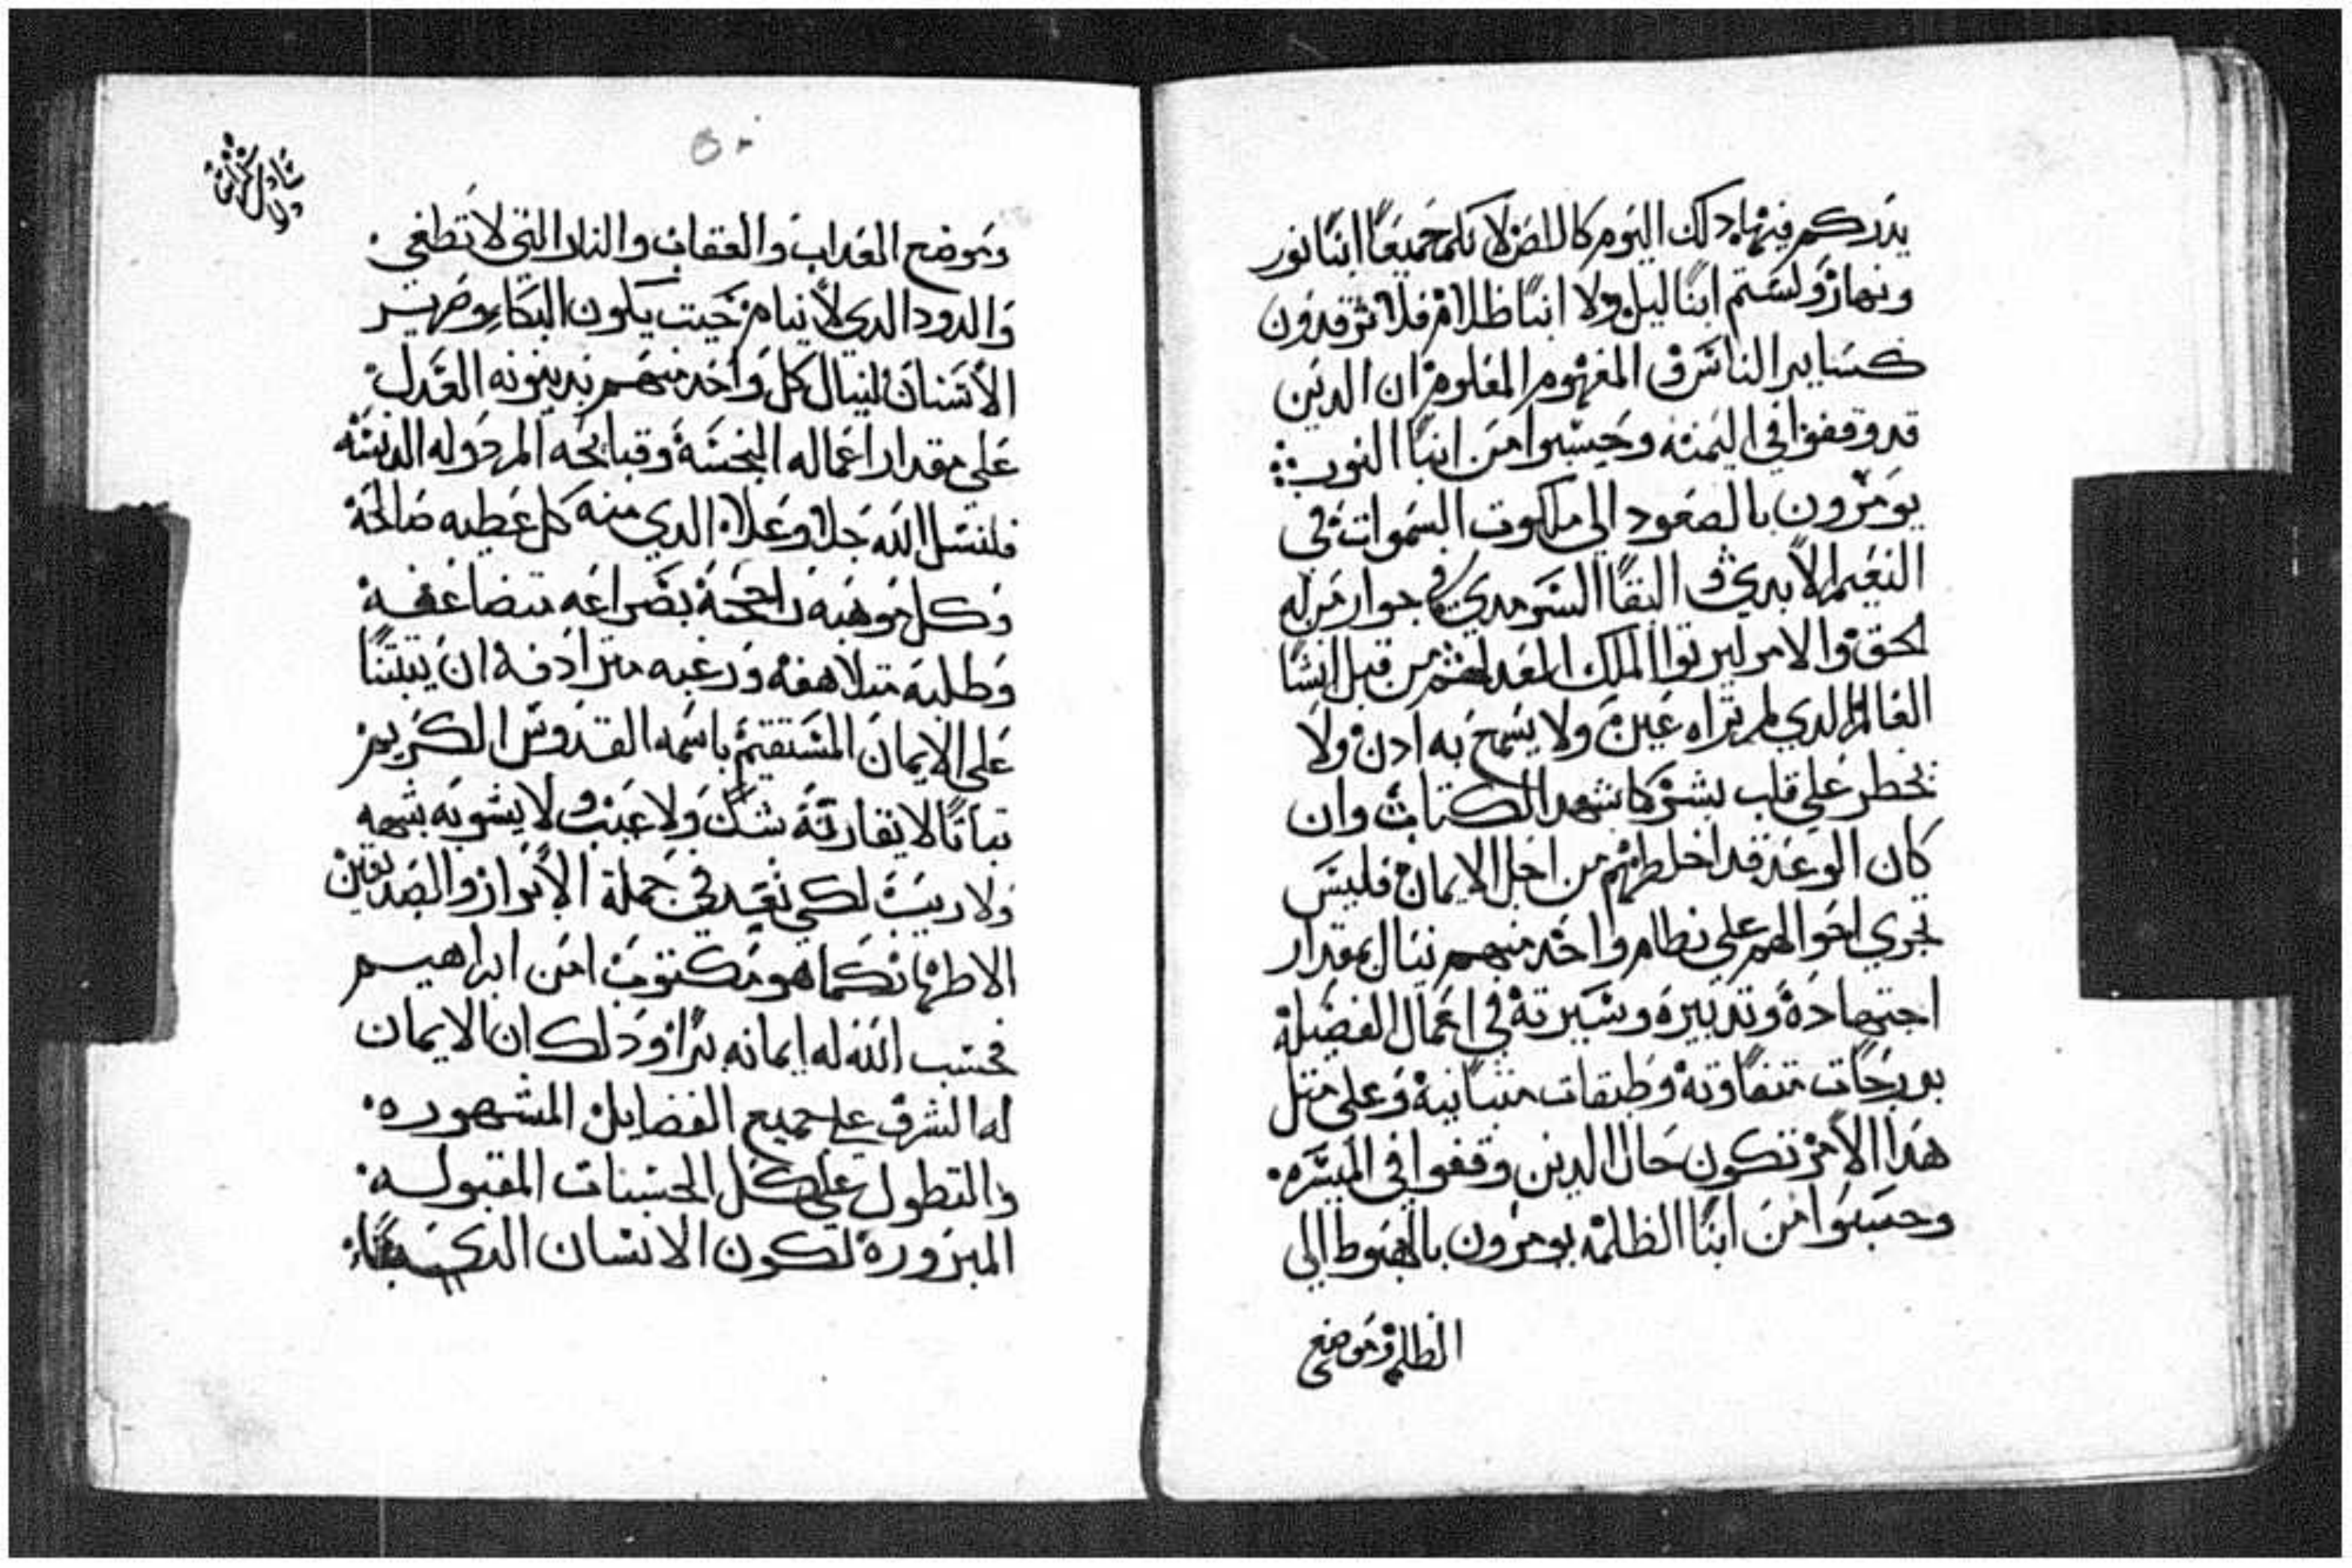 يدرككم فيها دلك اليوم كاللص لا نكم جميعًا ابنا نور
ونهار ولستم ابنا ليل ولا ابنا ظلام فلا ترقدون
كساير الناس ومن المفهوم المعلوم ان الدين
قد وقفوا في اليمنه وحسبوا من ابنا النور
يومرون بالصعود الي ملكوت السموات في
النعيم الابدي والبقا السرمدي في جوار من له
الحق والامر ليرتوا الملك المعد لهم من قبل انشا
العالم الدي لم تراه عين ولا يسمع به ادن ولا
يخطر علي قلب بشر كما شهد الكتاب وان
كان الوعد قد اخلطهم من اجل الايمان فليس
تجري احوالهم علي نظام واحد منهم نيال بمقدار
اجتهاده وتدبيره وسيرته في اعمال الفضيلة
بدرجات متفاوته وطبقات متباينة وعلي متل
هدا الامر تكون حال الدين وقفوا في الميسره
وحسبوا من ابنا الظلمه يومرون بالهبوط الي
الظلمه وموضع
٥٠
وموضع العداب والعقاب والنار التي لا تطفي
والدود الدي لا ينام حيت يكون البكاء وصرير
الاسنان لينال كل واحد منهم بدينونه العدل
علي مقدار اعماله النجسة وقبايحه المردوله الدنسة
فلنسل الله جل وعلا الدي منه كل عطيه صالحة
وكل موهبه راجحة بضراعه متضاعفة
وطلبة متلاهفه ورغبه مترادفه ان يتبتنا
علي الايمان المستقيم باسمه القدوس الكريم
تباتًا لا يقارنه شك ولا عيب ولا يشوبه شبهه
ولا ريب لكي نعد في جملة الابرار والصديقين
الاطهار كما هو مكتوب امن ابراهيم
فحسب الله له ايمانه برًا ودلك ان الايمان
له الشرف علي جميع الفضايل المشهوره
والتطول علي كل الحسنات المقبوله
المبروره لكون الانسان الدي